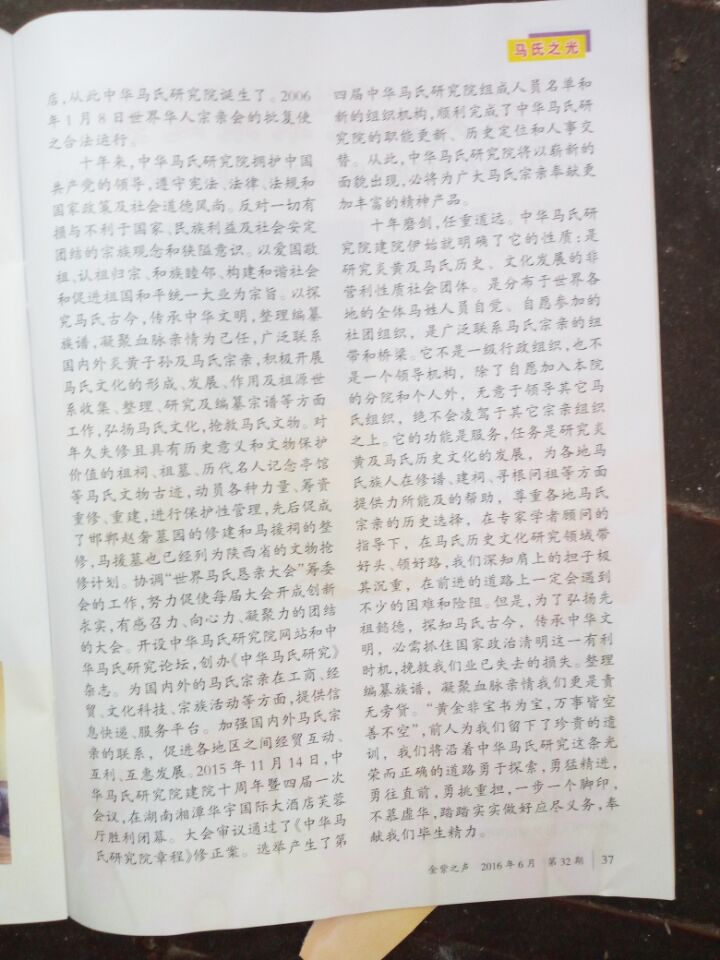 马氏之光
店,从此中华马氏研究院诞生了。2006
年1月8日世界华人宗亲会的批复使
之合法运行。
十年来,中华马氏研究院拥护中国
共产党的领导,遵守宪法、法律、法规和
国家政策及社会道德风尚。反对一切有
损与不利于国家、民族利益及社会安定
团结的宗族观念和狭隘意识。以爱国敬
祖、认祖归宗、和族睦邻、构建和谐社会
和促进祖国和平统一大业为宗旨。以探
究马氏古今,传承中华文明,整理编纂
族谱,凝聚血脉亲情为己任,广泛联系
国内外炎黄子孙及马氏宗亲,积极开展
马氏文化的形成、发展、作用及祖源世
系收集、整理、研究及编纂宗谱等方面
工作,弘扬马氏文化,抢救马氏文物。对
年久失修且具有历史意义和文物保护
价值的祖祠、祖墓、历代名人记念亭馆
等马氏文物古迹,动员各种力量、筹资
重修、重建,进行保护性管理,先后促成
了邯郸赵奢墓园的修建和马援祠的整
修,马援墓也已经列为陕西省的文物抢
修计划。协调“世界马氏恳亲大会”筹委
会的工作,努力促使每届大会开成创新
求实,有感召力、向心力、凝聚力的团结
的大会。开设中华马氏研究院网站和中
华马氏研究论坛,创办《中华马氏研究》
杂志。为国内外的马氏宗亲在工商、经
贸、文化科技、宗族活动等方面,提供信
息快递、服务平台。加强国内外马氏宗
亲的联系,促进各地区之间经贸互动、
互利、互惠发展。2015年11月14日,中
华马氏研究院建院十周年暨四届一次
会议,在湖南湘潭华宇国际大酒店芙蓉
厅胜利闭幕。大会审议通过了《中华马
氏研究院章程》修正案。选举产生了第
四届中华马氏研究院组成人员名单和
新的组织机构,顺利完成了中华马氏研
究院的职能更新、历史定位和人事交
替。从此,中华马氏研究院将以崭新的
面貌出现,必将为广大马氏宗亲奉献更
加丰富的精神产品。
十年磨剑,任重道远。中华马氏研
究院建院伊始就明确了它的性质:是
研究炎黄及马氏历史、文化发展的非
营利性质社会团体。是分布于世界各
地的全体马姓人员自觉、自愿参加的
社团组织,是广泛联系马氏宗亲的纽
带和桥梁。它不是一级行政组织,也不
是一个领导机构,除了自愿加入本院
的分院和个人外,无意于领导其它马
氏组织,绝不会凌驾于其它宗亲组织
之上。它的功能是服务,任务是研究炎
黄及马氏历史文化的发展,为各地马
氏族人在修谱、建祠、寻根问祖等方面
提供力所能及的帮助,尊重各地马氏
宗亲的历史选择,在专家学者顾问的
指导下,在马氏历史文化研究领域带
好头、领好路,我们深知肩上的担子极
其沉重,在前进的道路上一定会遇到
不少的困难和险阻。但是,为了弘扬先
祖懿德,探知马氏古今,传承中华文
明,必需抓住国家政治清明这一有利
时机,挽救我们业已失去的损失。整理
编纂族谱,凝聚血脉亲情我们更是责
无旁贷。“黄金非宝书为宝,万事皆空
善不空”,前人为我们留下了珍贵的遗
训,我们将沿着中华马氏研究这条光
荣而正确的道路勇于探索,勇猛精进,
勇往直前,勇挑重担,一步一个脚印,
不慕虚华,踏踏实实做好应尽义务,奉
献我们毕生精力。
金紫之声 2016年6月 第32期 37